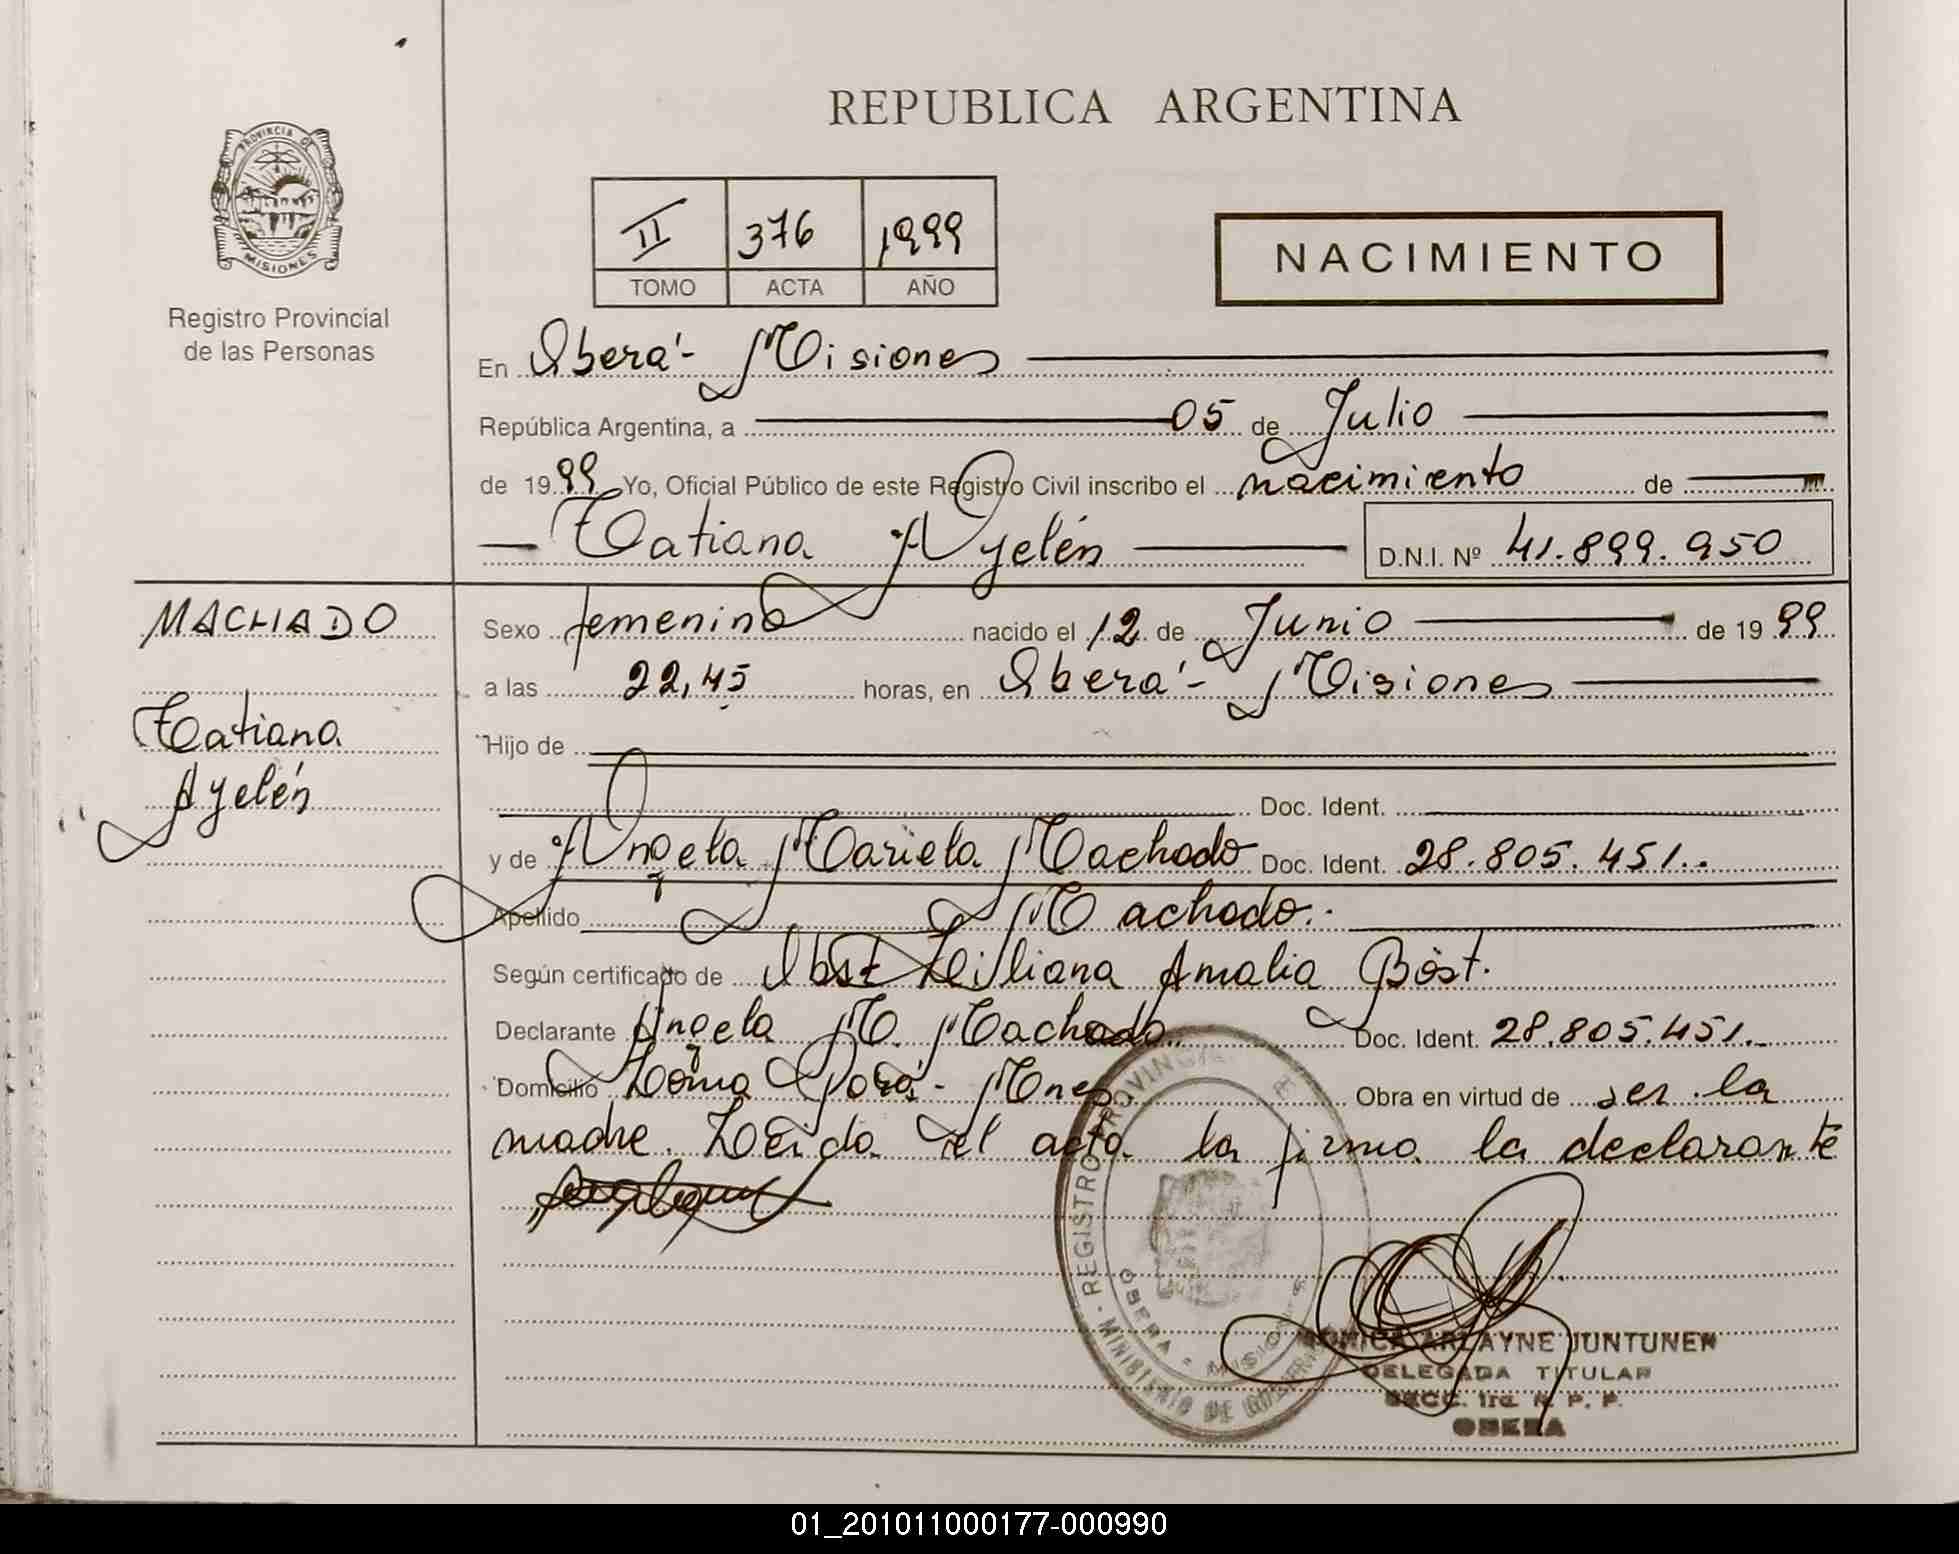 REPUBLICA ARGENTINA
PROVINCIA DE
MISIONES
Registro Provincial
de las Personas
II 376 1999
TOMO ACTA AÑO
NACIMIENTO
En Oberá - Misiones
República Argentina, a 05 de Julio
de 1999 Yo, Oficial Público de este Registro Civil inscribo el nacimiento de
Tatiana Ayelén D.N.I. Nº 41.899.950
MACHADO
Tatiana
Ayelén
Sexo femenino nacido el 12 de Junio de 1999
a las 22,45 horas, en Oberá - Misiones
Hijo de
Doc. Ident.
y de Angela Mariela Machado Doc. Ident. 28.805.451.
Apellido Machado.
Según certificado de Obst Liliana Amalia Böst.
Declarante Angela M. Machado. Doc. Ident. 28.805.451.
Domicilio Loma Porá - Mnes Obra en virtud de ser la
madre. Leida el acta la firma la declarante
REGISTRO PROVINCIAL DE
OBERA - MISIONES
MINISTERIO DE GOBIERNO
MONICA ARLAYNE JUNTUNEN
DELEGADA TITULAR
SECC. 1ra. R. P. P.
OBERA
01_201011000177-000990